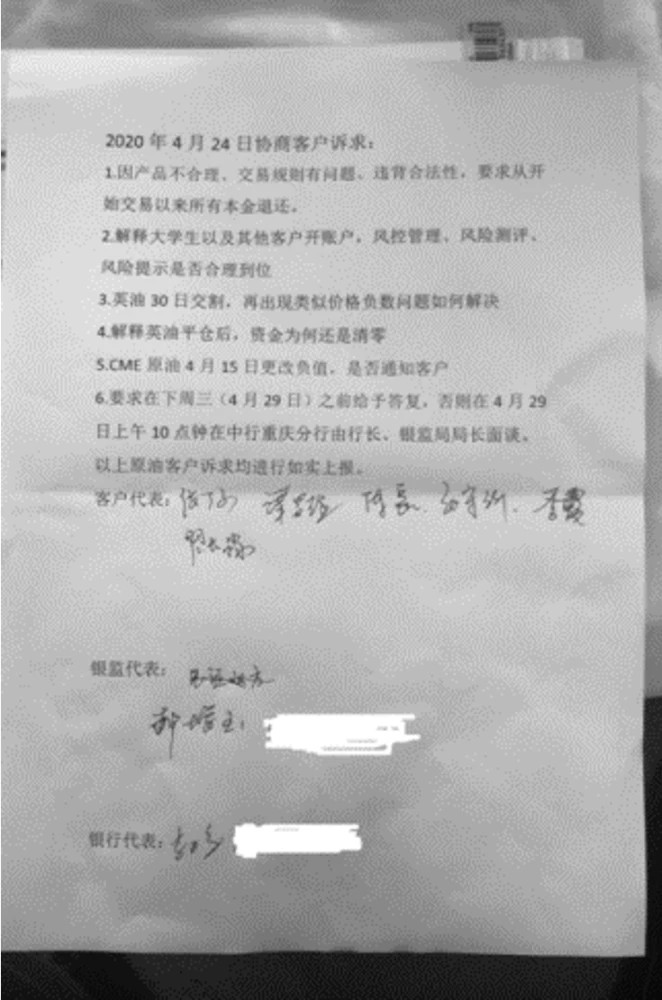 2020 年 4 月 24 日协商客户诉求：
1.因产品不合理、交易规则有问题、违背合法性，要求从开
始交易以来所有本金退还。
2.解释大学生以及其他客户开账户，风控管理、风险测评、
风险提示是否合理到位
3.英油 30 日交割，再出现类似价格负数问题如何解决
4.解释英油平仓后，资金为何还是清零
5.CME 原油 4 月 15 日更改负值，是否通知客户
6.要求在下周三（4 月 29 日）之前给予答复，否则在 4 月 29
日上午 10 点钟在中行重庆分行由行长、银监局局长面谈。
以上原油客户诉求均进行如实上报。
客户代表：
银监代表：
银行代表：